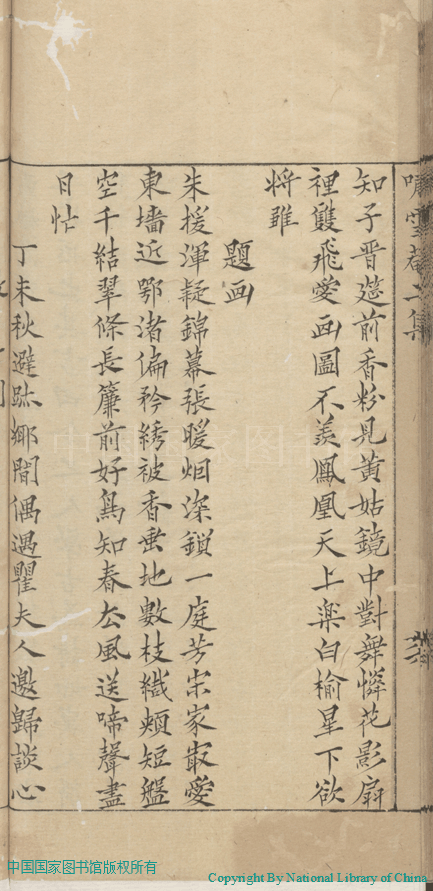 知子晋筵前香粉見黄姑鏡中對舞憐花影扇
裡雙飛愛画圖不羡鳳凰天上楽白榆星下欲
将雛
題画
朱援渾疑錦幕張暖烟深鎖一庭芳宋家最愛
東墻近鄂渚偏矜綉被香垂地數枝織頰短盤
空千結翠條長簾前好鳥知春去風送啼聲盡
日忙
丁未秋避跡鄉間偶遇瞿夫人邀歸談心
中国国家图书馆版权所有
Copyright By National Library of China